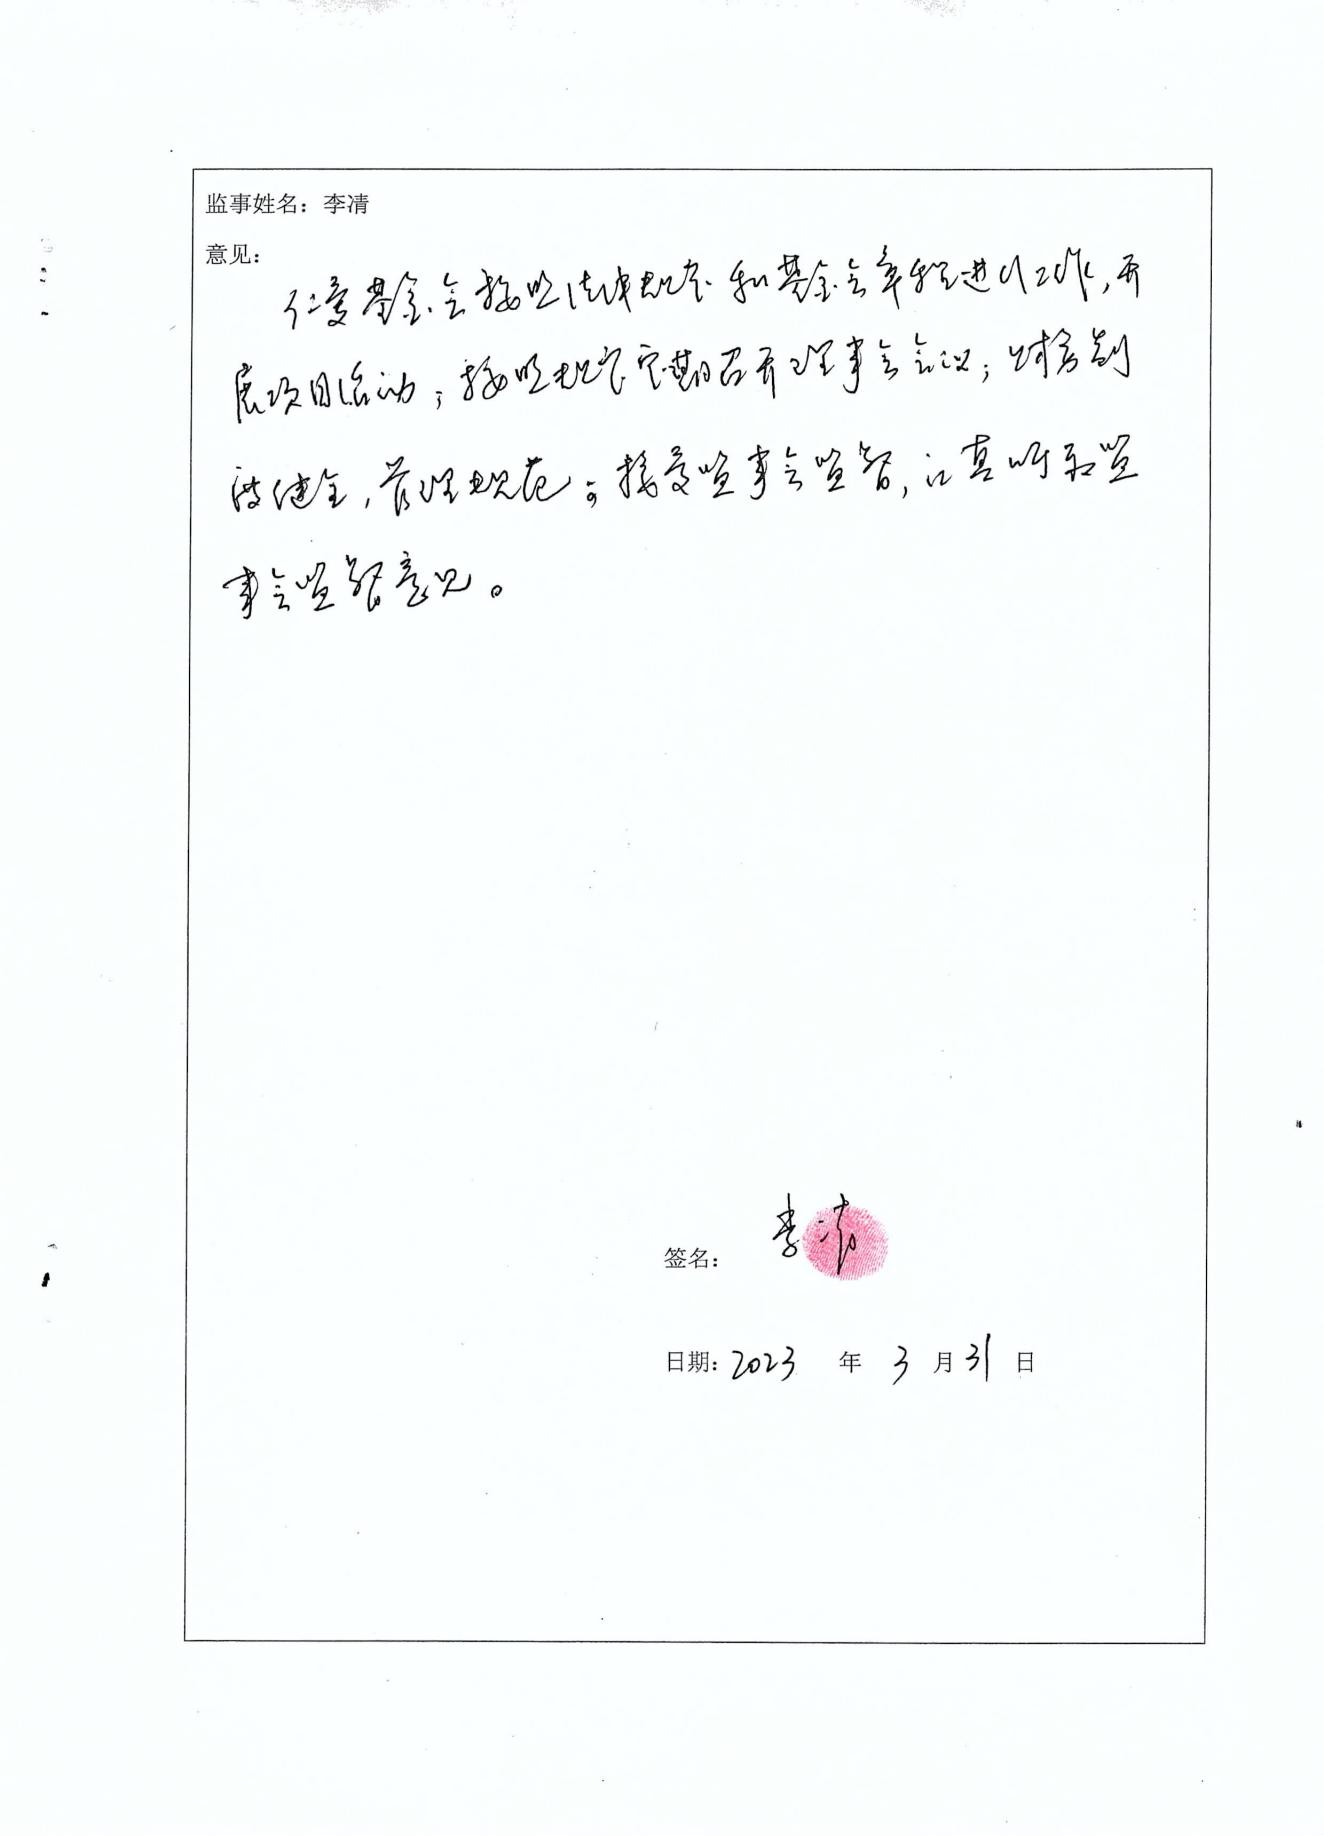 监事姓名：李凊
意见：
仁爱基金会按照法律规定和基金会章程进行工作，开
展项目活动；按照规定定期召开理事会会议；财务制
度健全，管理规范。接受监事会监督，认真听取监
事会监督意见。
签名：李凊
日期：2023 年 3 月 31 日